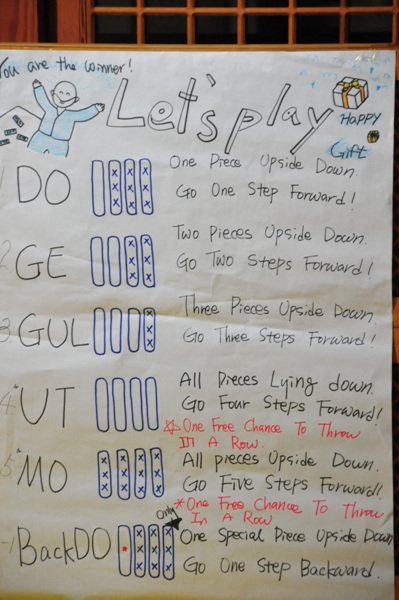 You are the winner!
Let's play
HAPPY
Gift
1 DO
One Piece Upside Down.
Go One Step Forward!
2 GE
Two Pieces Upside Down.
Go Two Steps Forward!
3. GUL
Three Pieces Upside Down.
Go Three Steps Forward!
4 UT
All Pieces Lying down.
Go Four Steps Forward!
☆ One Free Chance To Throw
In A Row.
5 MO
All pieces Upside Down.
Go Five Steps Forward!
* One Free Chance To Throw
In A Row
-1 BackDO
Only
★ One Special Piece Upside Down
Go One Step Backward.